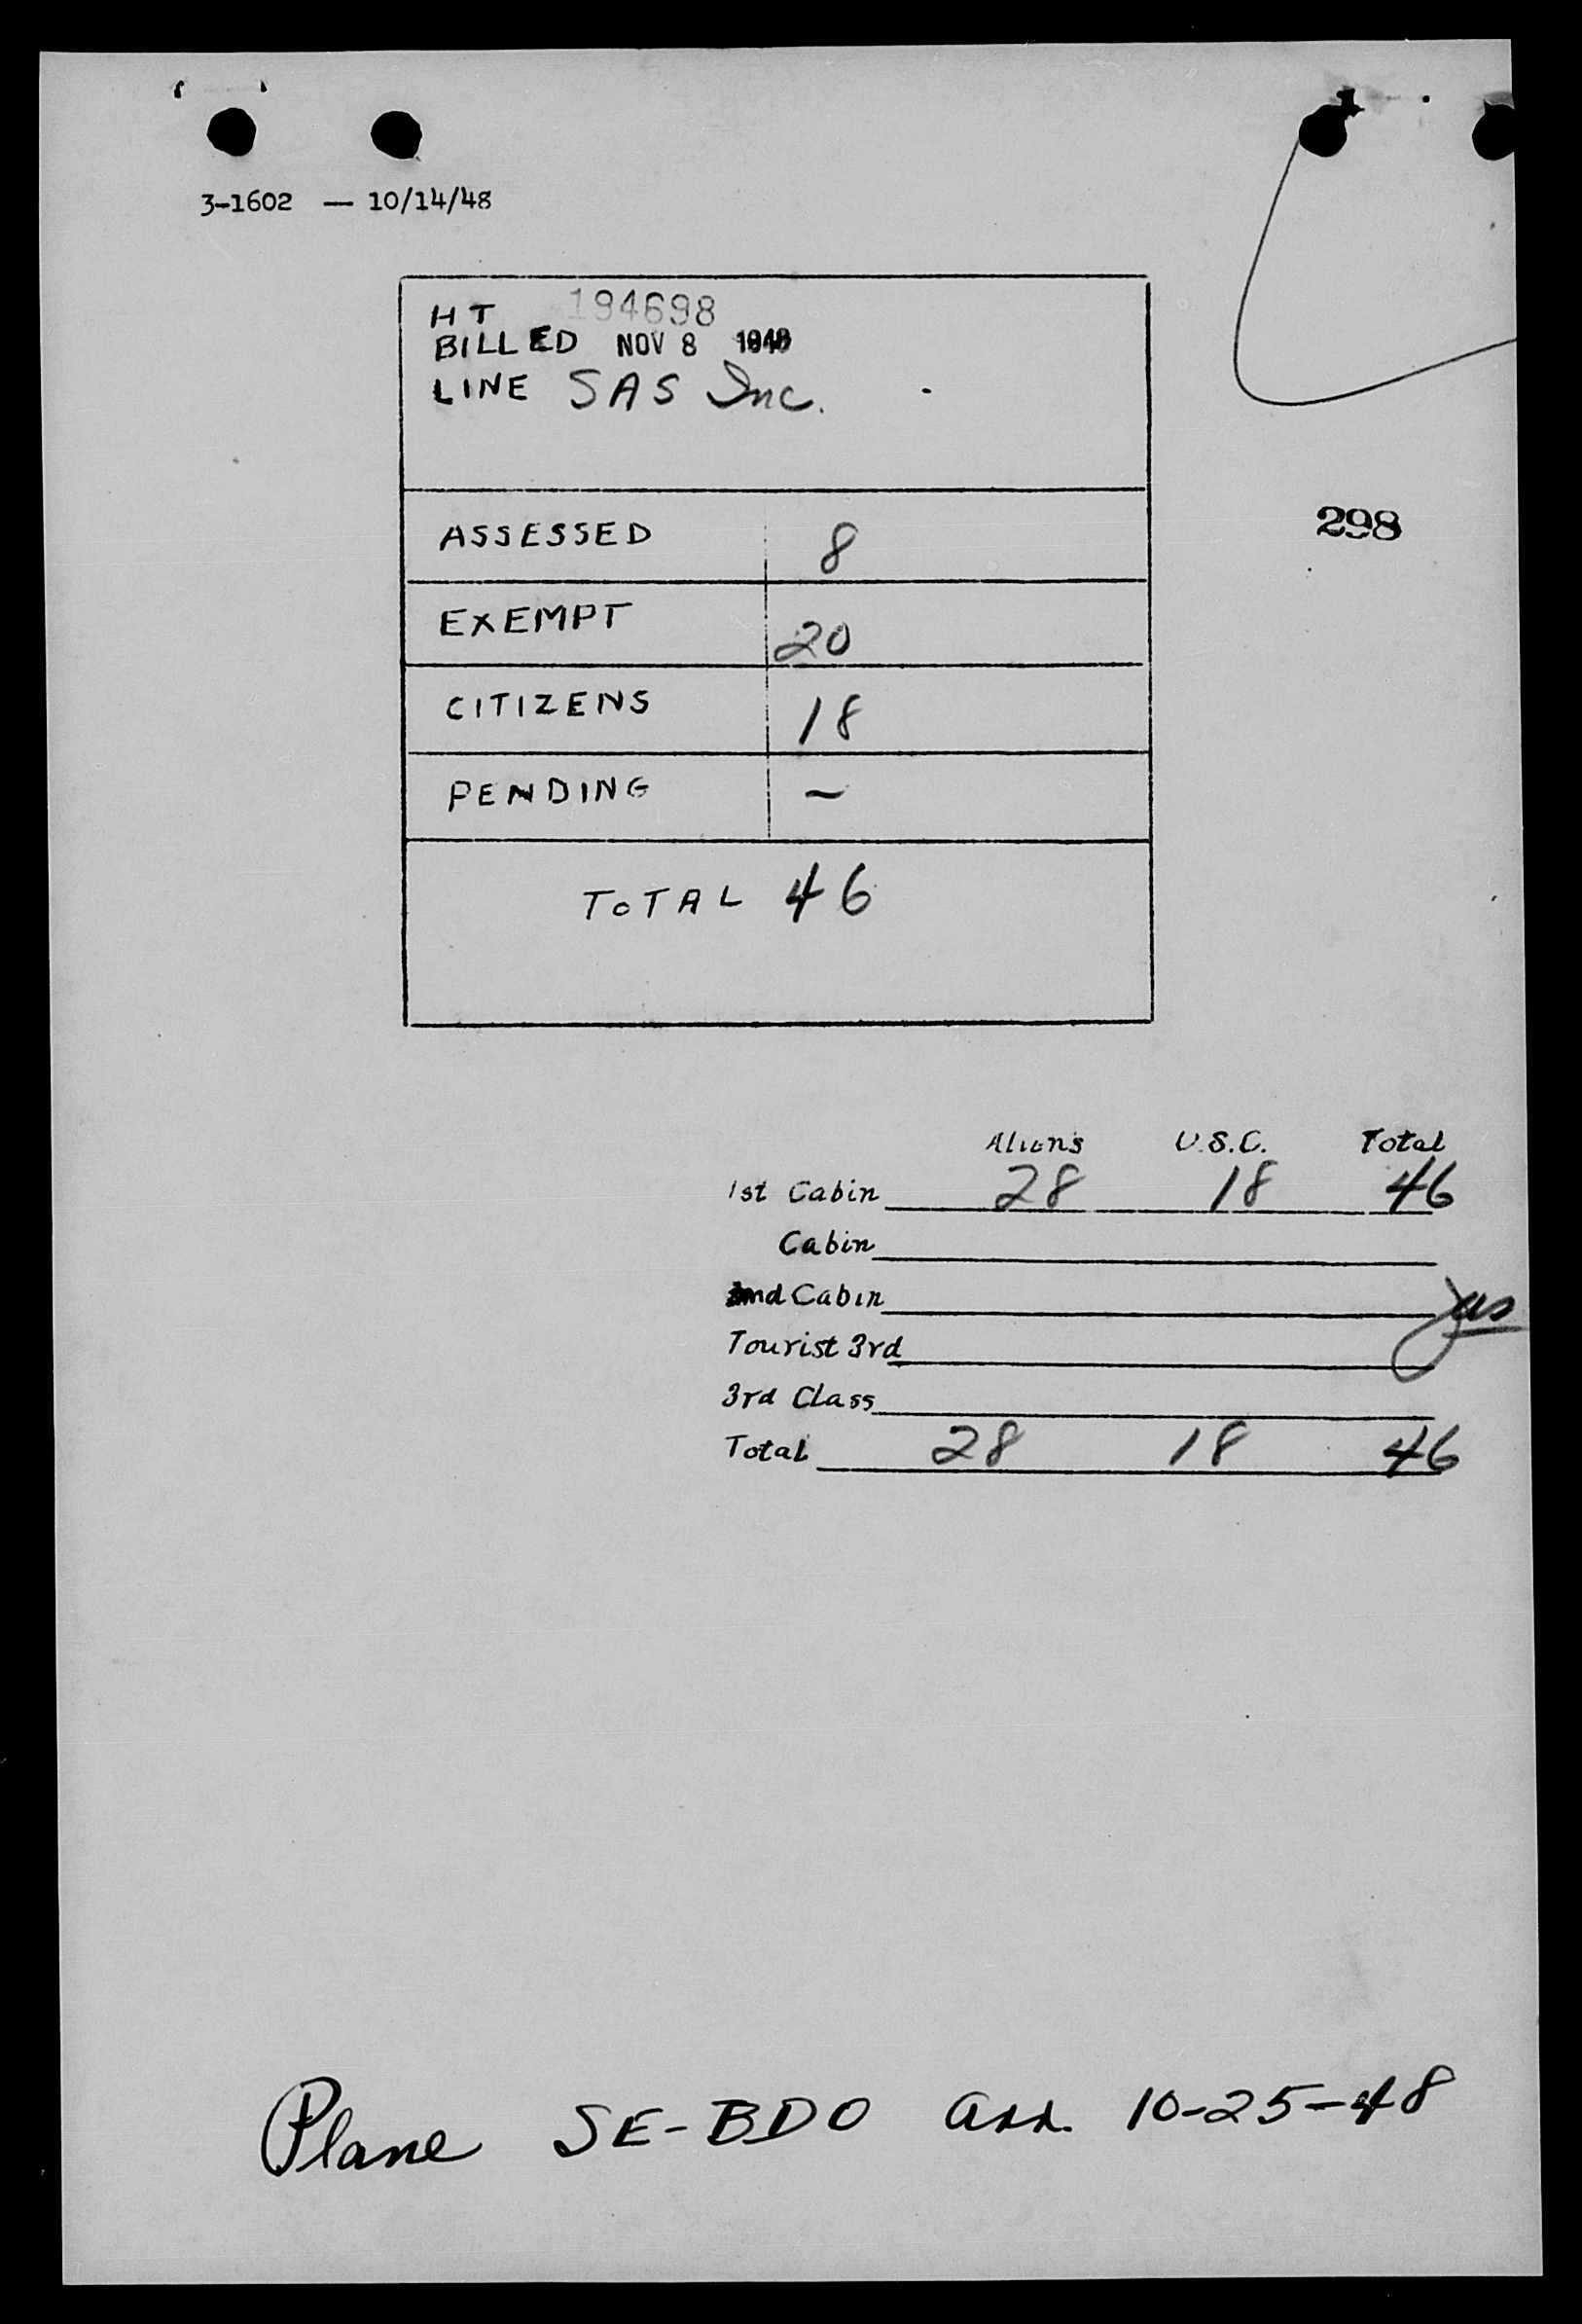 3-1602 — 10/14/48
HT 194698
BILLED NOV 8 1948
LINE SAS Inc.
298
ASSESSED 8
EXEMPT 20
CITIZENS 18
PENDING –
TOTAL 46
Aliens U.S.C. Total
1st Cabin 28 18 46
Cabin
2nd Cabin
Tourist 3rd
3rd Class
Total 28 18 46
Plane SE-BDO arr. 10-25-48